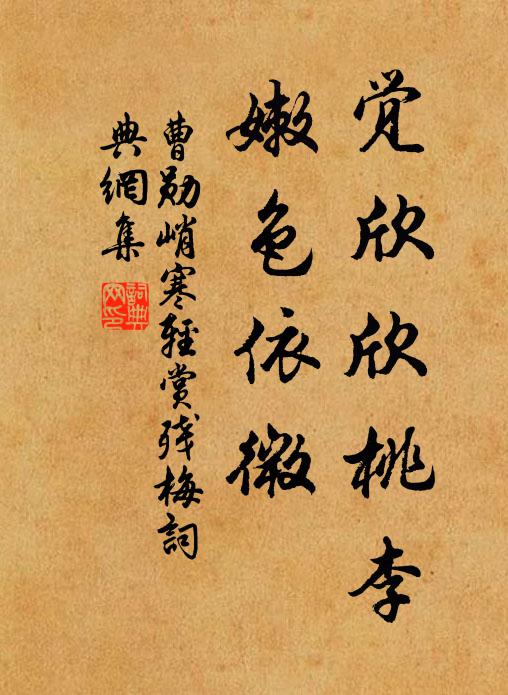 觉欣欣桃李
嫩色依微
曹勋峭寒轻赏残梅词
典網集
詞典網印